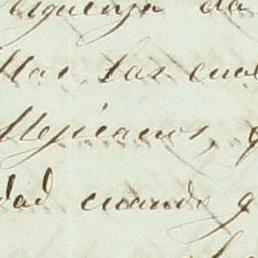 da
llas las cual
Mejicanos, q
dad cuando q